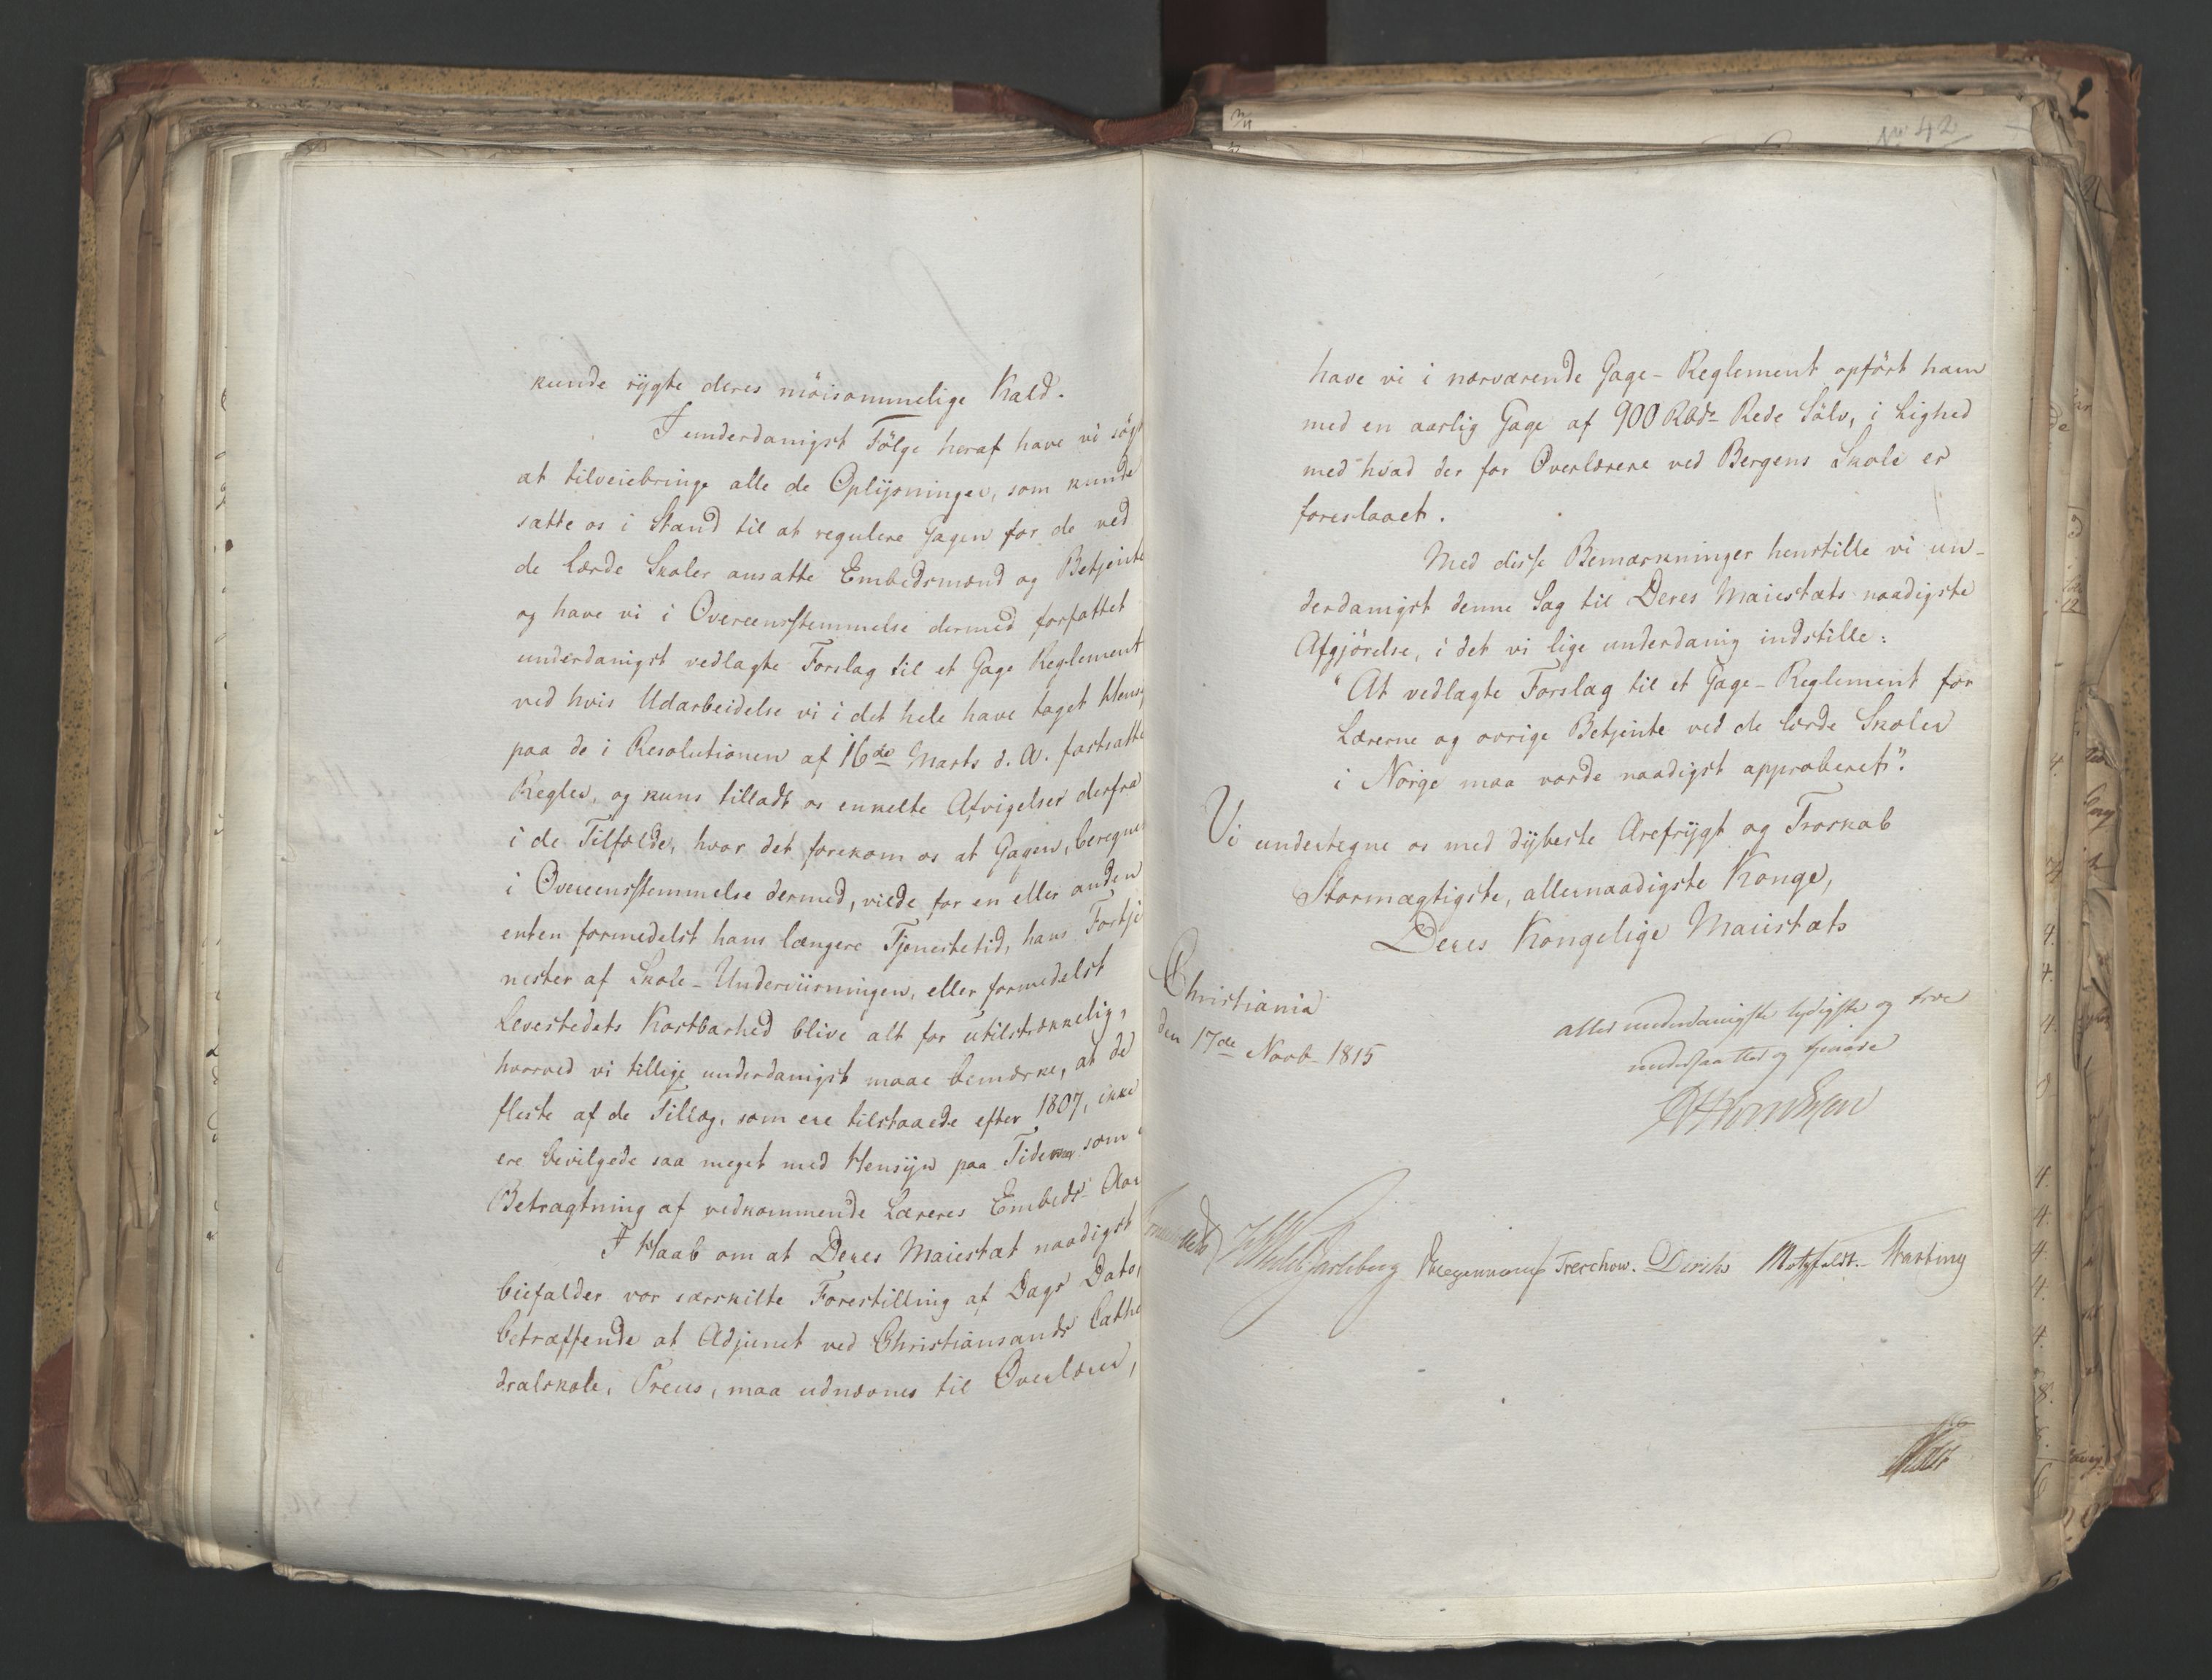 kunde rÿgte deres möisommelige Kald.
I underdanigst Fölge heraf have vi søg
at tilveiebringe alle de Oplÿsninger, som kunde
sætte os i Stand til at regulere Gagen for de ved
de lærde Skoler ansatte Embedsmænd og Betjente
og have vi i Overeensstemmelse dermed forfattet
underdanigst vedlagte Forslag til et Gage Reglement
ved hvis Udarbeidelse vi i det hele have taget Hens
paa de i Resolutionen af 16de Marts d. A. fastsatte
Regler, og kuns tilladt os enkelte Afvigelser derfra
i de Tilfælde, hvor det forekom os at Gagen, beregne
i Overeensstemmelse dermed, vilde for en eller anden
enten formedelst hans længere Tjenestetid, hans Fortje
nester af Skole-Underviisningen, eller formedelst
Levestedets Kostbarhed blive alt for utilstrækkelig,
hvorved vi tillige underdanigst maae bemærke, at de
fleste af de Tillæg, som ere tilstaaede efter 1807, ikke
ere bevilgede saa meget med Hensÿn paa Tiderne som
Betragtning af vedkommende Læreres Embeds-Aar
I Haab om at Deres Maiestæt naadigst
biefalder vor særskilte Forestilling af Dags Dato,
betræffende at Adjunct ved Christiansands Cathe
dralskole, Preus, maa udnævnes til Overlærer,
No 42
have vi i nærværende Gage-Reglement opfört ham
med en aarlig Gage af 900 Rbd- Rede Sölv, i Lighed
med hvad der for Overlærere ved Bergens Skole er
foreslaaet.
Med disse Bemærkninger henstille vi un-
derdanigst denne Sag til Deres Maiestæts naadigste
Afgjörelse, i det vi lige underdanig indstille:
"At vedlagte Forslag til et Gage-Reglement for
Lærerne og øvrige Betjente ved de lærde Skoler
i Norge maa vorde naadigst approberet".
Vi undertegne os med dÿbeste Ærefrÿgt og Troskab
Stormægtigste, allernaadigste Konge,
Deres Kongelige Maiestæts
Christiania
den 17de Novb- 1815
aller underdanigste lydigste og troe
undersaatter og tienere
M Sommerhielm
F Wedel Jarlsberg Treschow. Diriks Motzfeldt. Hasting